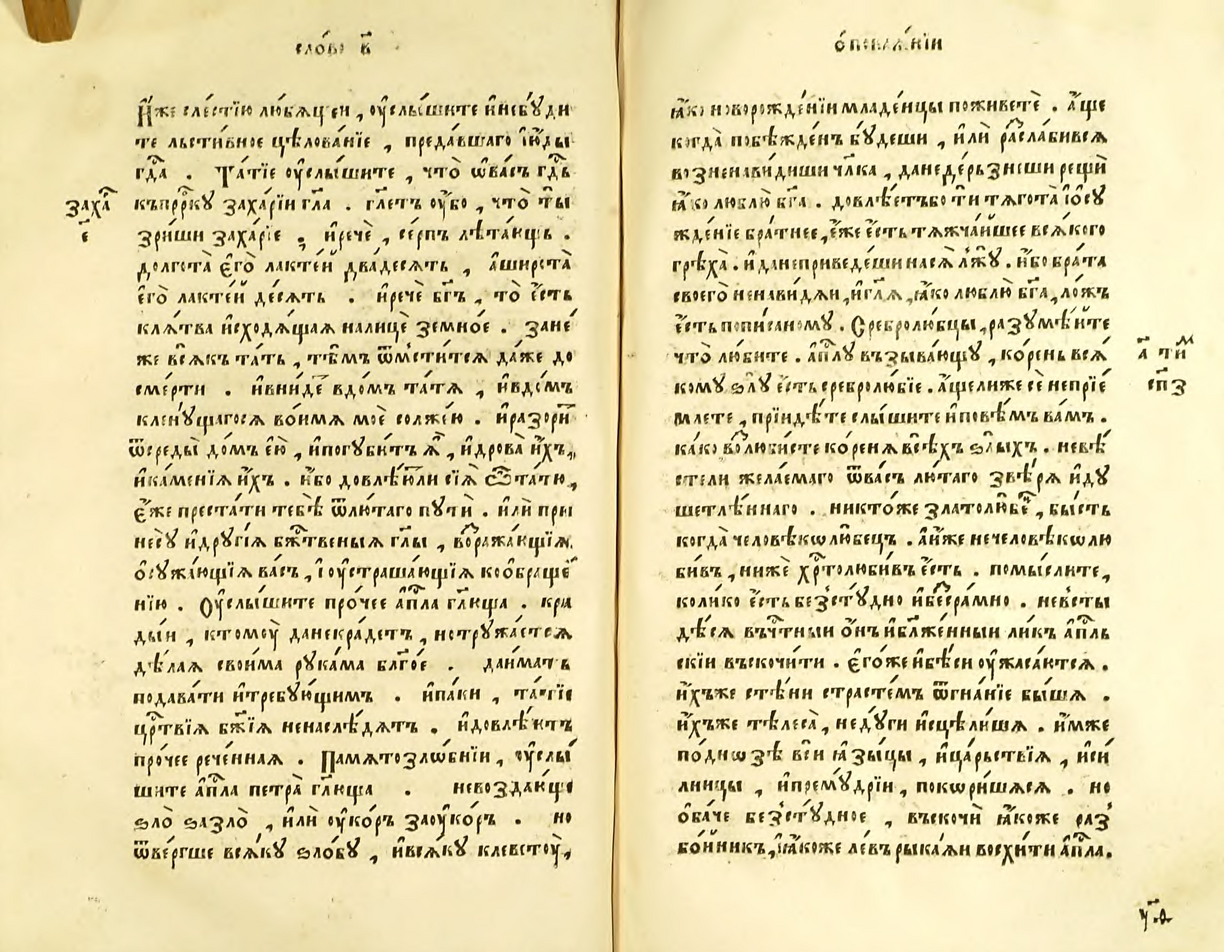 сло́во в҃
И҆́же сле́стїю лю́бѧщеи , ᲂу҆слы́шите и҆небꙋ́ди
те льсти́вное цѣлова́нїе , преда́вшаго і҆ю́ды
гдⷭ҇а . Та́тїе ᲂу҆слы́шите , что̀ ѡ҆ва́съ гдⷭ҇ь
къпрⷪ҇ркꙋ заха́рїи гл҃а . гл҃етъ ᲂу҆́бо , что̀ ты̀
заха
е҃
зри́ши заха́рїе ; и҆речѐ , се́рпъ лѣта́ющь .
долгота̀ є҆го̀ лакте́й два́десѧть , а҆широта̀
є҆го̀ лакте́й де́сѧть . и҆речѐ бг҃ъ , то̀ є҆́сть
клѧ́тва и҆сходѧ́щаѧ налицѐ земно́е . зане́
же всѧ́къ та́ть , ѿме́стити́сѧ да́же до
сме́рти . и҆вни́де вдо́мъ та́тѧ , и҆вдо́мъ
клену́щагосѧ во́имѧ моѐ солже́ю . и҆разори́тъ
ѿсреды̀ до́мъ є҆ю̀ , и҆погꙋби́тъ ѧ҆̀ , и҆дрова̀ и҆́хъ ,
и҆ка́менїѧ и҆́хъ . и҆́бо довлѣ́юли сїѧ̀ ѿта́тю ,
є҆́же преста́ти тебѣ̀ ѿлю́таго пꙋтѝ . и҆лѝ при
несꙋ̀ и҆дрꙋгі́ѧ бж҃тве́ныѧ гл҃ы , воⷥража́ющїѧ ,
ѻ҆сꙋжа́ющїѧ ва́съ , і҆ᲂу҆страша́ющїѧ кооⷡ҇браще́
нїю . Оу҆слы́шите про́чее а҆пⷭ҇ла гл҃юща . кра
ды́и , ктомꙋ̀ данекра́детъ , нотрꙋжа́етсѧ
дѣ́лаѧ свои́ма рꙋка́ма бл҃го́е . даи҆́мать
подава́ти и҆тре́бꙋющимъ . и҆па́ки , та́тїе
црⷭ҇твїѧ бж҃їѧ ненаслѣ́дѧтъ . и҆довлѣ́ютъ
про́чее рече́ннаѧ . Памѧтозло́бнїи , ᲂу҆слы́
шите а҆пⷭ҇ла петра̀ гл҃юща . невоздаю́ще
ѕло̀ ѕаѕло̀ , и҆лѝ ᲂу҆ко́ръ заᲂу҆ко́ръ . но
ѿве́ргше всѧ́кꙋ ѕло́бꙋ , и҆всѧ́кꙋ клеветꙋ̀ ,
ѻ҆ покаѧ́нїи
ꙗ҆́ко новорожде́нїи младе́нцы поживетѐ . а҆́ще
когда̀ побѣжде́нъ бꙋ́деши , и҆лѝ разсла́бивсѧ
возненави́диши чл҃ка , данеде́рьзнеши рещѝ
ꙗ҆́ко люблю̀ бг҃а . довлѣ́етъбо тѝ тѧгота̀ ѻ҆сꙋ
жде́нїе бра́тнее , є҆́же є҆́сть тѧжча́йшее всѧ́кого
грѣха̀ . и҆данеприведе́ши насѧ̀ лжꙋ̀ . и҆́бо бра́та
своего̀ ненави́дѧи , и҆гл҃ѧ , ꙗ҆́ко люблю̀ бг҃а , ло́жъ
є҆́сть пописа́номꙋ . Сребролю́бцы , разꙋмѣ́йте
что̀ лю́бите . а҆пⷭ҇лꙋ възыва́ющꙋ , ко́рень всѧ́
а҃ тиⷨ
сп҃з
комꙋ ѕлꙋ̀ є҆́сть сребролю́бїе . а҆́щелиже сѐ непрїе́
млете , прїидѣ́те слы́шите и҆повѣ́мъ ва́мъ .
ка́ко возлю́бисте ко́ренѧ всѣ́хъ ѕлы́хъ . невѣ́
стели жела́емаго ѿва́съ лю́таго звѣ́рѧ и҆дꙋ
шетлѣ́ннаго . никто́же златолю́бецъ , бы́сть
когда̀ человѣколю́бецъ . а҆́иже нечеловѣколю́
бивъ , нижѐ хрⷭ҇толюби́въ є҆́сть . помы́слите ,
коли́ко є҆́сть безстꙋ́дно и҆безсра́мно . невсты
дѣ́сѧ въчⷭ҇тны́и ѻ҆́нъ и҆бл҃же́нныи ли́къ а҆пⷭ҇ль
скїи въскочи́ти . є҆го́же и҆бѣ́си ᲂу҆жаса́ютсѧ .
и҆́хъже стѣ́ни страсте́мъ ѿгна́нїе бы́шѧ .
и҆́хъже тѣлеса̀ , недꙋ́ги и҆сцѣли́шѧ . и҆́мже
по́днозѣ всѝ ꙗ҆зы́цы , и҆ца́рьствїѧ , и҆си́
лницы , и҆премꙋ́дрїи , покори́шѧсѧ . но
ѻ҆ба́че безстꙋ́дное , въскочѝ ꙗ҆́коже раз
бо́йникъ , и҆ꙗ҆́коже ле́въ рыка́ѧи восхи́ти а҆пⷭ҇ла .